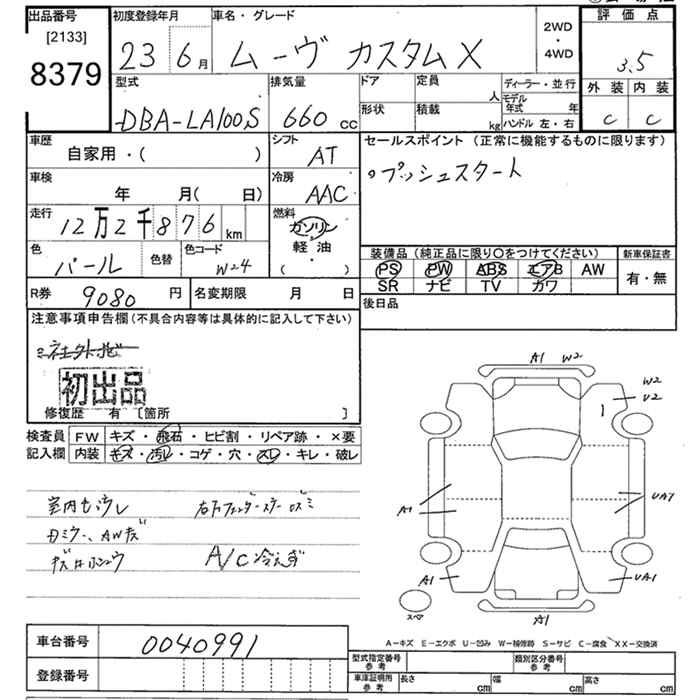 出品番号 初度登録年月 車名・グレード 評価点
[2133]
8379
23 6月 ムーヴ カスタムX 2WD・4WD 3.5
型式 排気量 ドア 定員 人 ディーラー・並行 外装 内装
DBA-LA100S 660cc 形状 積載 kg モデル年式 年 ハンドル 左・右 C C
車歴 シフト セールスポイント(正常に機能するものに限ります)
自家用・( ) AT ○プッシュスタート
車検 冷房
年 月( 日) AAC
走行 燃料
12万2千876km ガソリン
軽油
( ・ )
色 色替 色コード 装備品(純正品に限り○をつけてください) 新車保証書
パール W24 PS PW ABS エアB AW 有・無
SR ナビ TV カワ
R券 9080円 名変期限 月 日 後日品
注意事項申告欄(不具合内容等は具体的に記入して下さい)
初出品
修復歴 有 [箇所 ]
検査員 FW キズ・飛石・ヒビ割・リペア跡・×要
記入欄 内装 キズ・汚レ・コゲ・穴・スレ・キレ・破レ
室内セ汚レ
キズ
A/C冷えず
A1 W2
W2
U2
A1
UA7
A1
UA1
スペア
A1
A-キズ E-エクボ U-凹み W-補修跡 S-サビ C-腐食 XX-交換済
車台番号 0040991
登録番号
型式指定番号参考 類別区分番号参考
車庫証明用参考 長さ cm 幅 cm 高さ cm